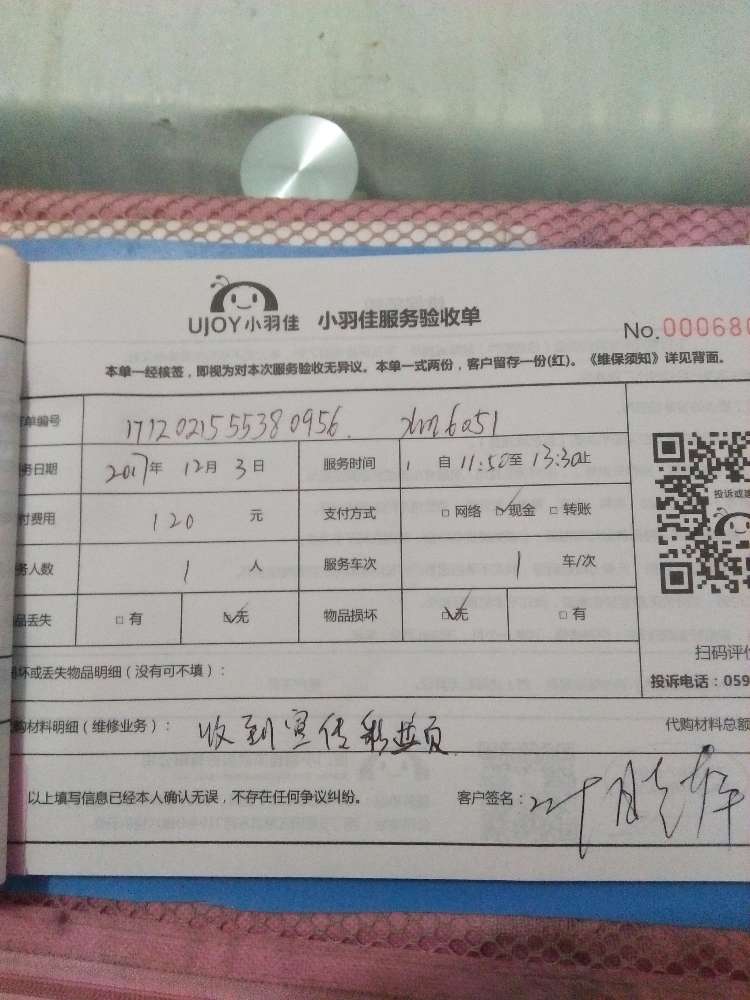 UJOY小羽佳 小羽佳服务验收单
No.000680
本单一经核签，即视为对本次服务验收无异议。本单一式两份，客户留存一份(红)。《维保须知》详见背面。
单编号 1712021555380956. xm6051
务日期 2017年 12月 3日 服务时间 1 自 11:50至 13:30止
付费用 120 元 支付方式 □网络 ☑现金 □转账
务人数 1 人 服务车次 1 车/次
品丢失 □有 ☑无 物品损坏 ☑无 □有
投诉或
扫码评价
坏或丢失物品明细（没有可不填）：
投诉电话：059
购材料明细（维修业务）： 收到宣传彩页
代购材料总额
以上填写信息已经本人确认无误，不存在任何争议纠纷。 客户签名：